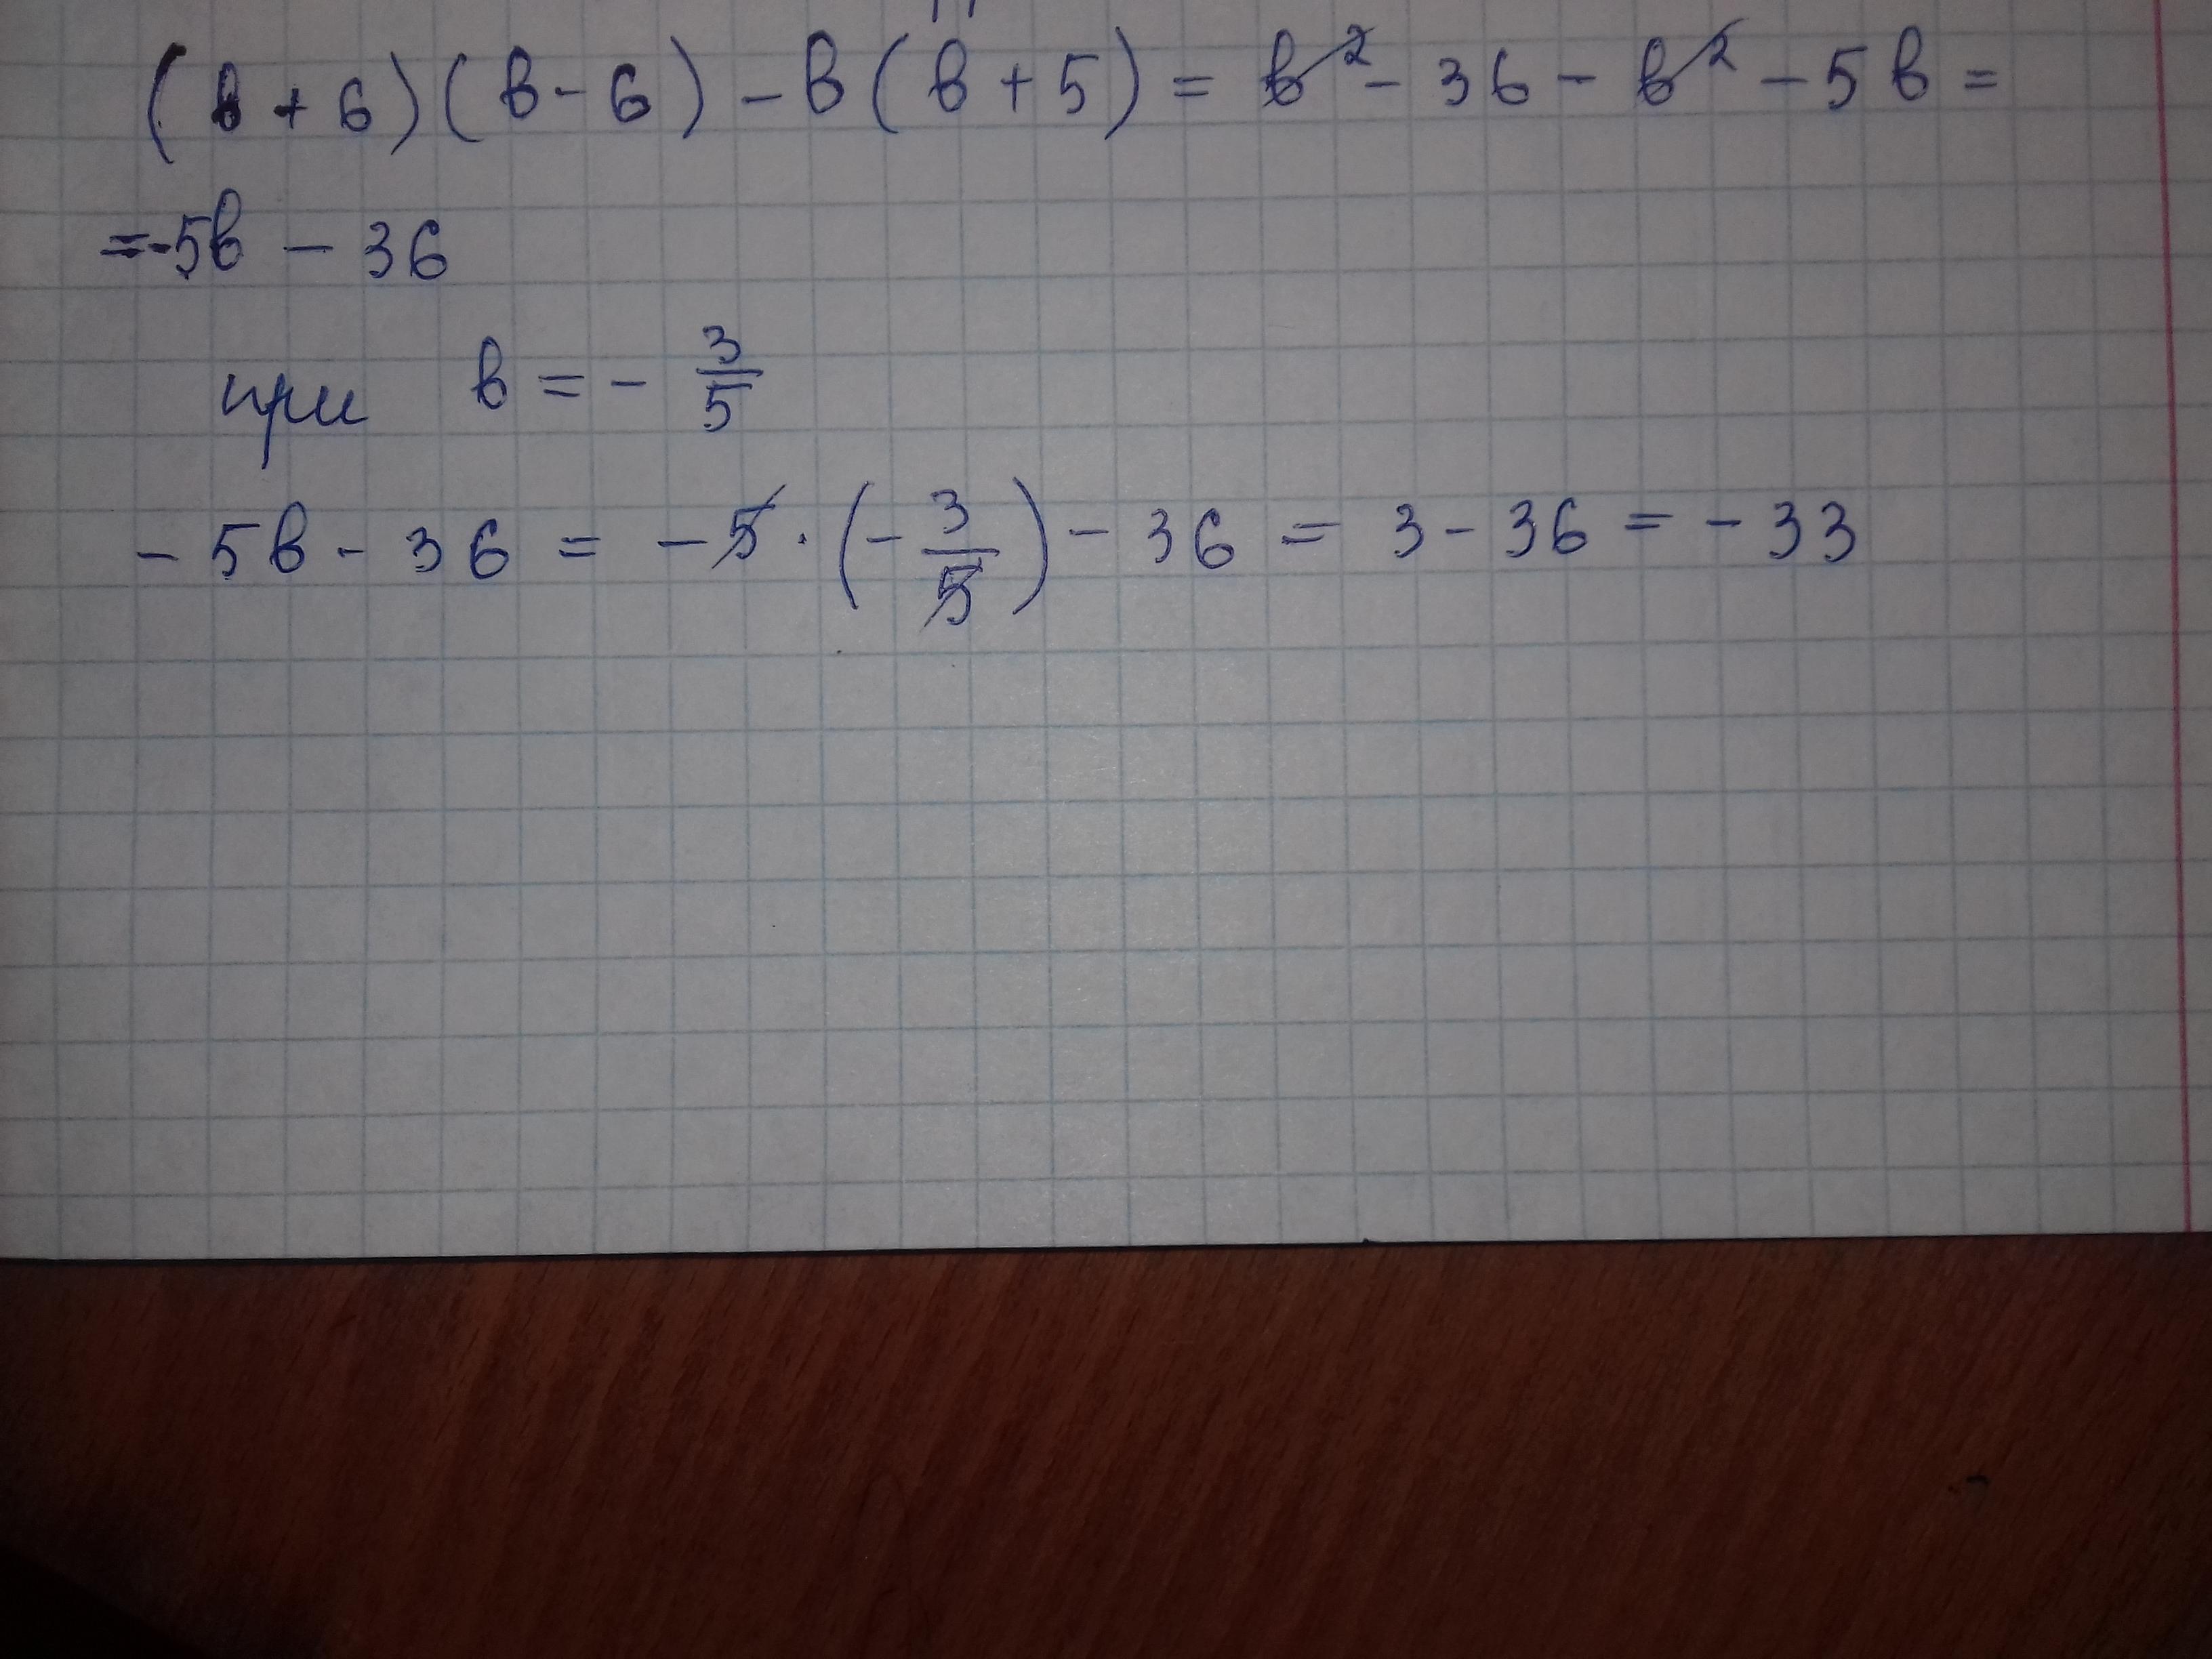 (b + 6)(b - 6) - b(b + 5) = b² - 36 - b² - 5b =
= -5b - 36
при b = - 3/5
- 5b - 36 = - 5 · (- 3/5) - 36 = 3 - 36 = - 33